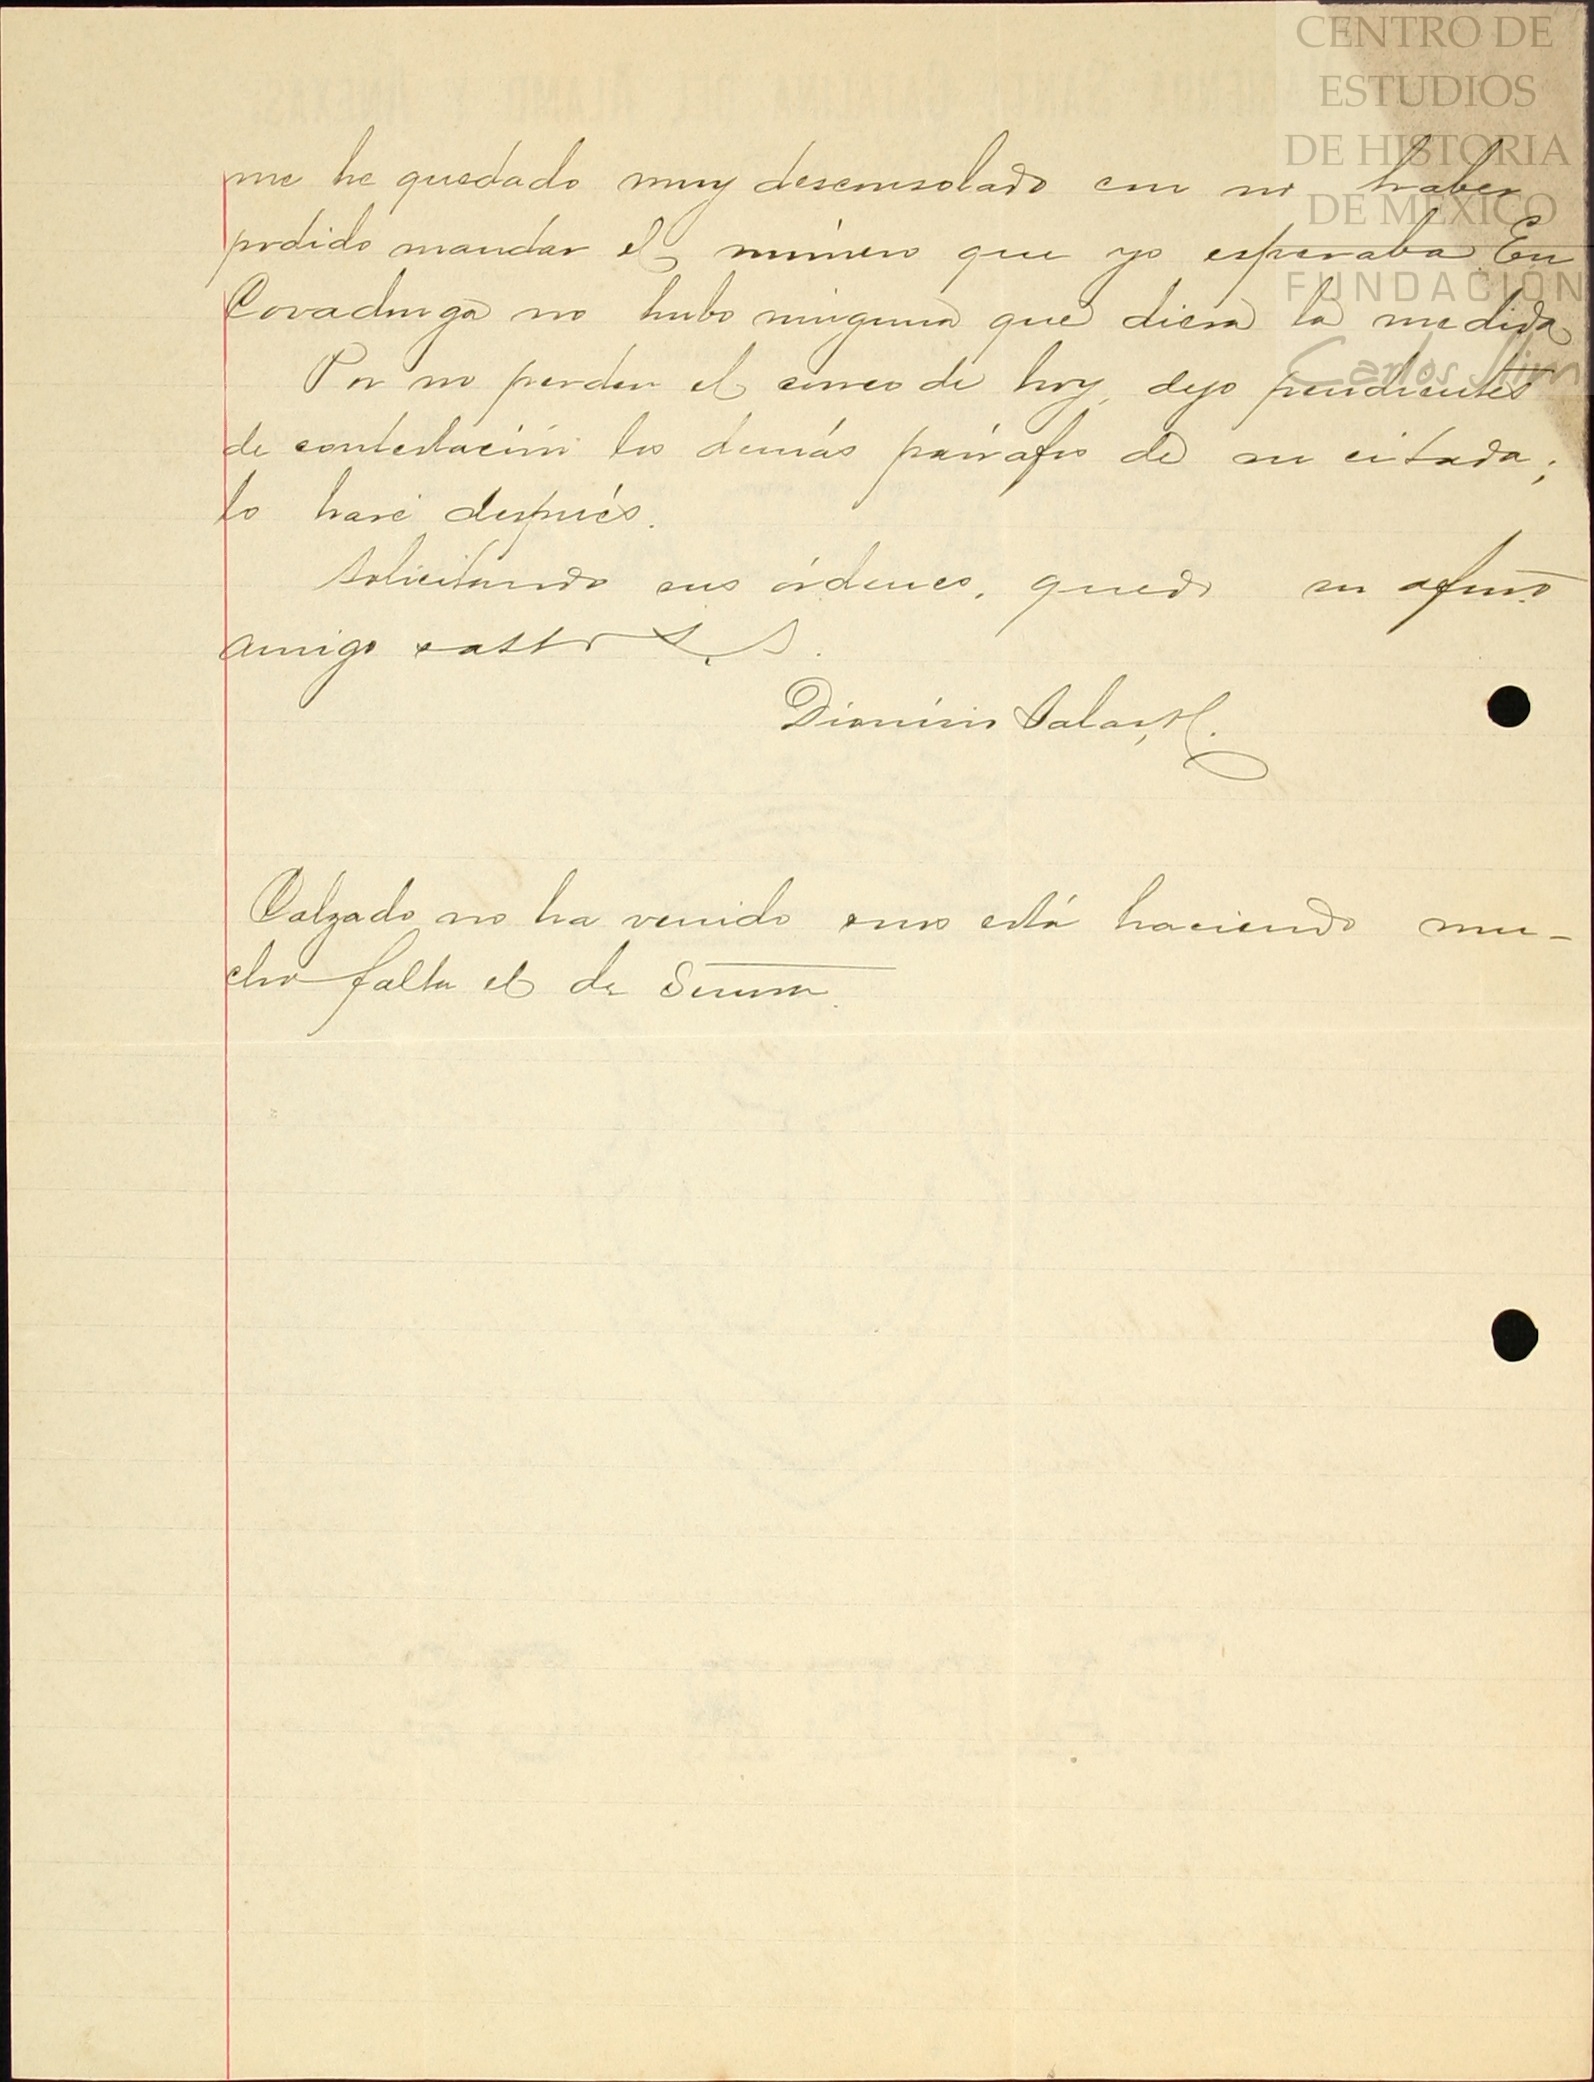 CENTRO DE
ESTUDIOS
DE HISTORIA
DE MÉXICO
FUNDACIÓN
Carlos Slim
me he quedado muy desconsolado con no haber
podido mandar el número que yo esperaba En
Covadonga no hubo ninguna que diera la medida
Por no perder el correo de hoy, dejo pendientes
de contestación los demás párrafos de su citada;
lo haré después.
Solicitando sus órdenes, quedo su afmo
amigo atto S. S.
Dionisio Salas,
Calzado no ha venido está haciendo mu-
cha falta el de